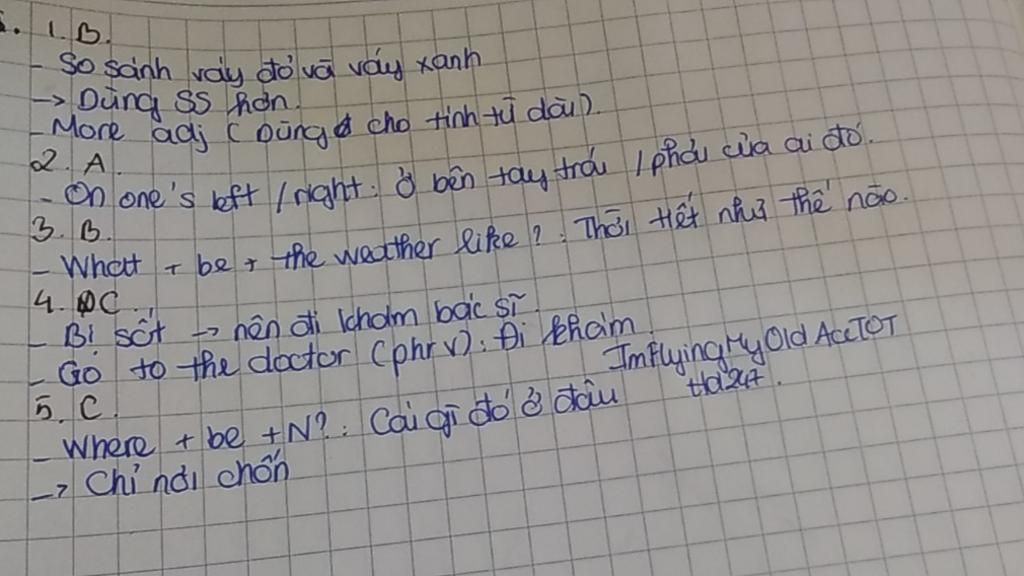 1. B.
- So sánh váy đỏ và váy xanh
→ Dùng SS hơn.
- More adj (Dùng cho tính từ dài).
2. A.
- On one's left / right: Ở bên tay trái / phải của ai đó.
3. B.
- What + be + the weather like? : Thời tiết như thế nào.
4. C.
- Bị sốt → nên đi khám bác sĩ
- Go to the doctor (phr v): Đi khám.
ImflyingMyOldAccTOT
Hd247.
5. C.
- Where + be + N? : Cái gì đó ở đâu
→ Chỉ nơi chốn